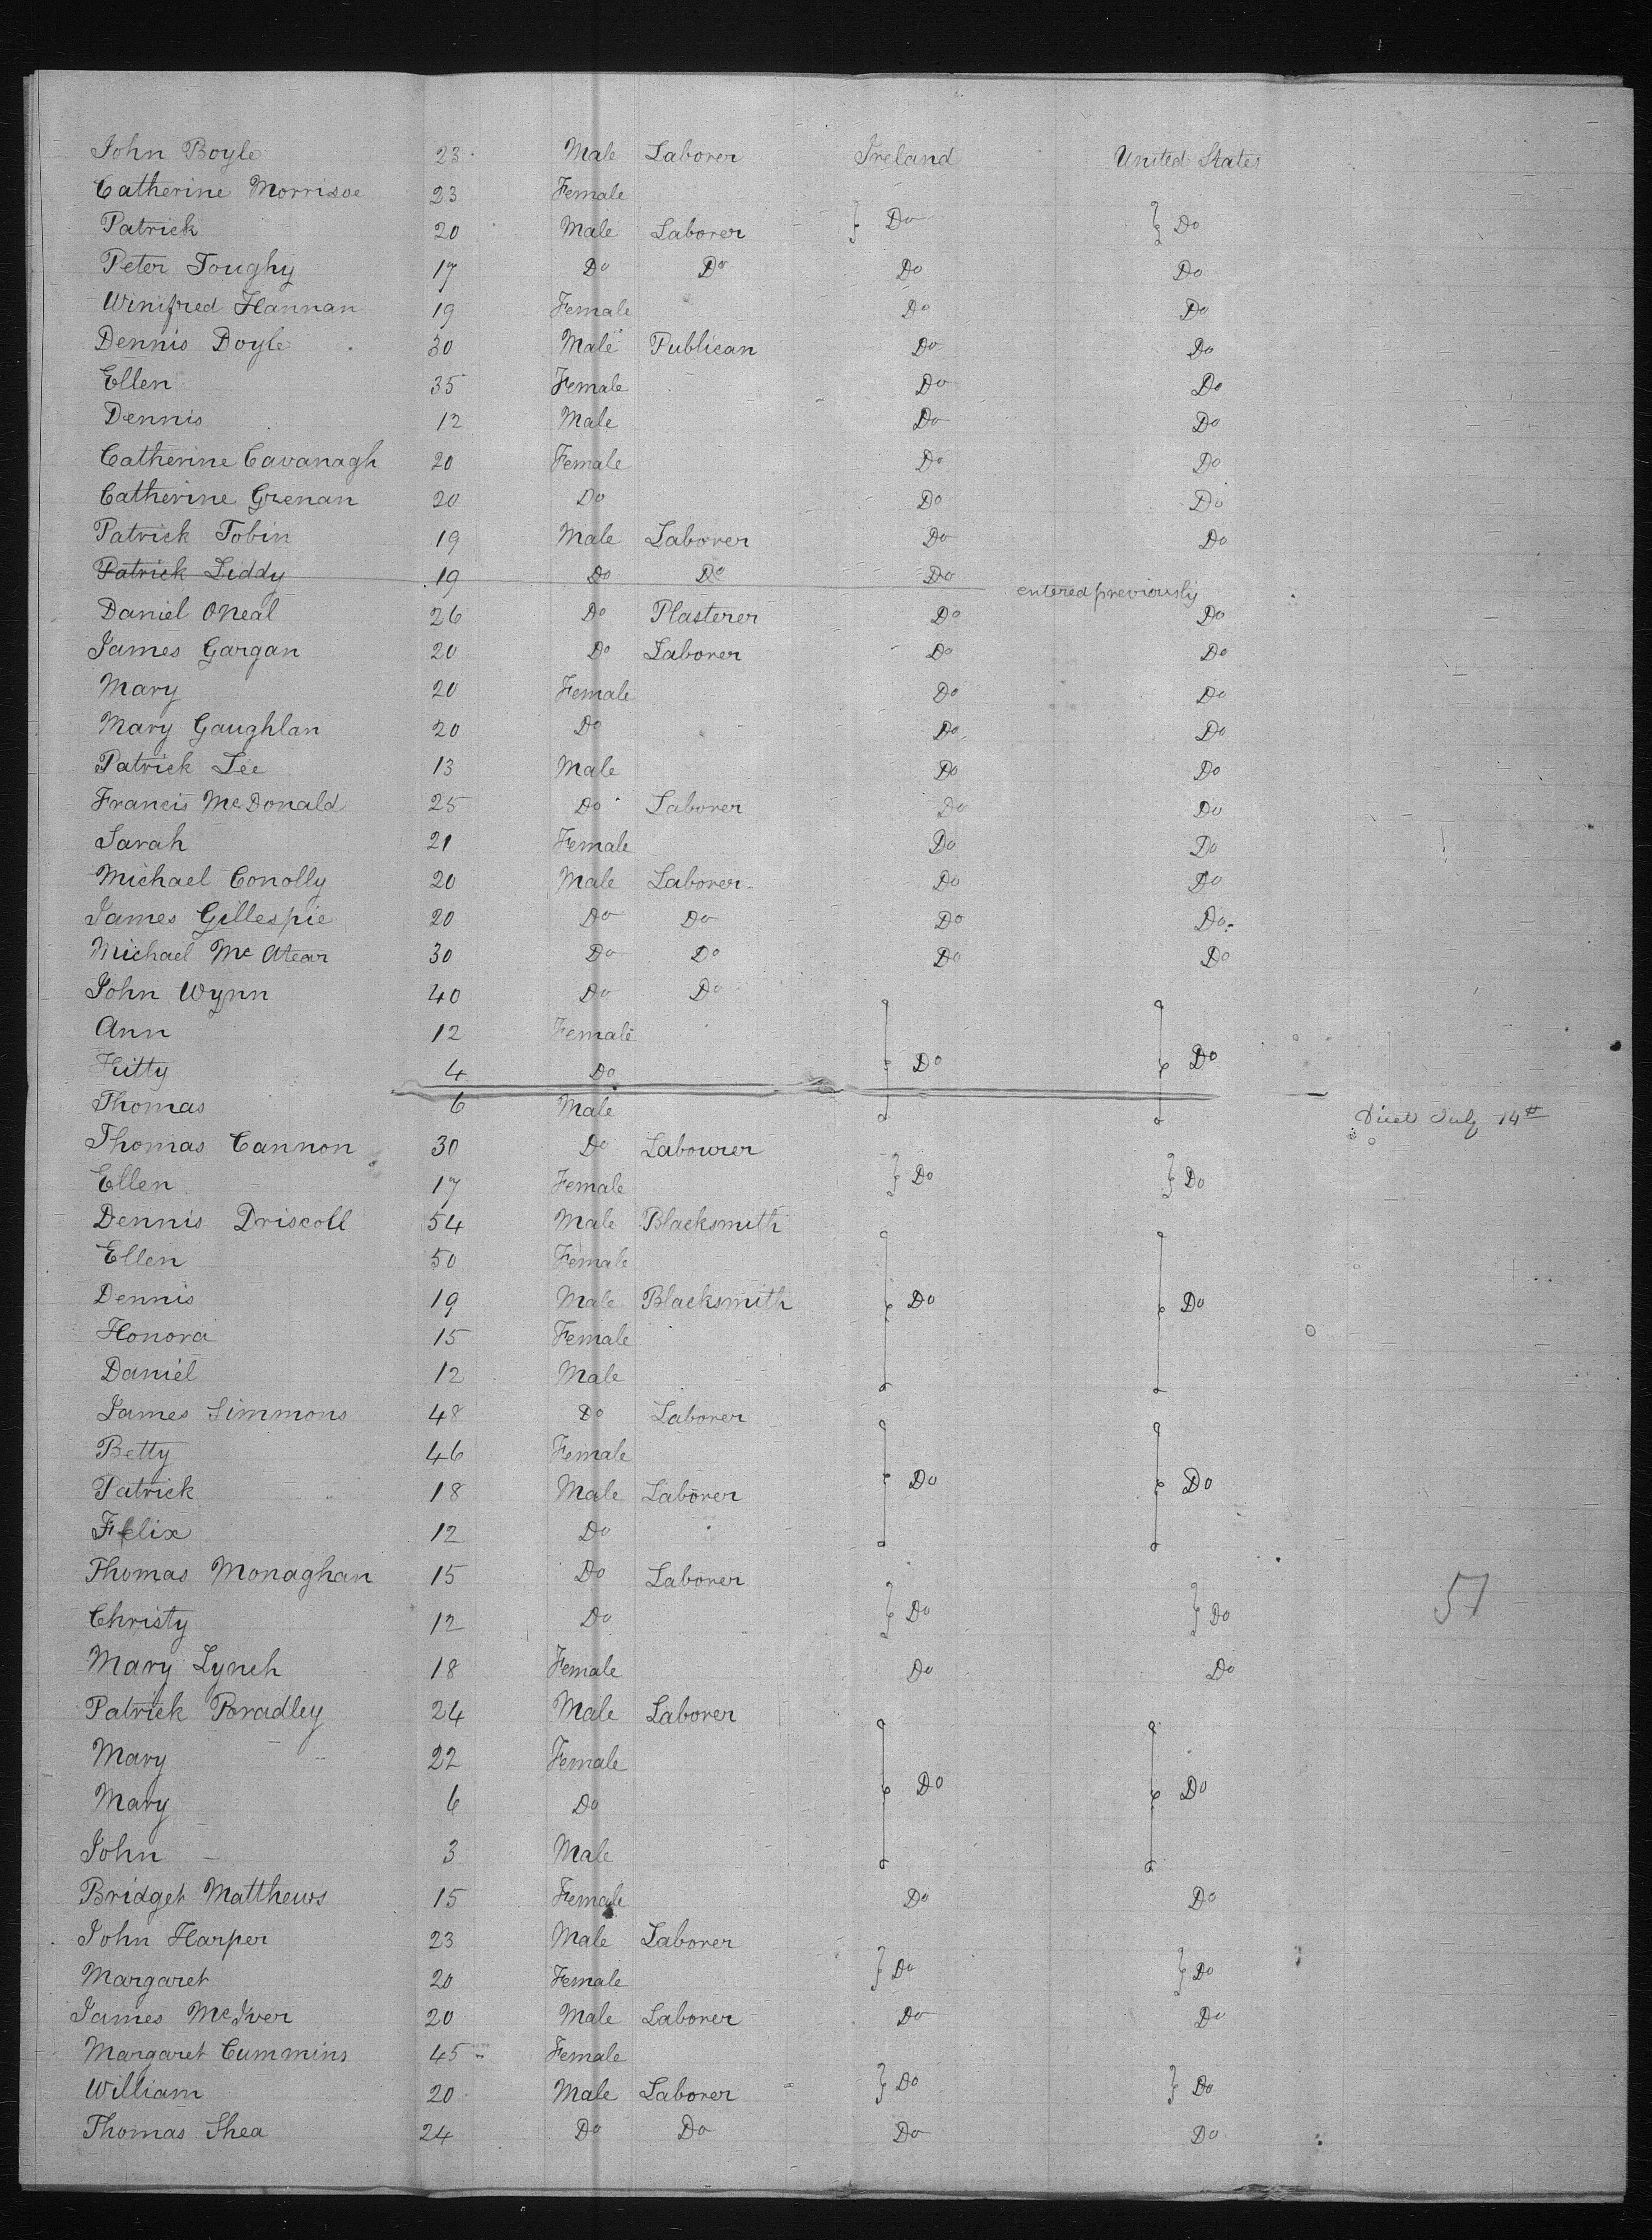 John Boyle 23 Male Laborer Ireland United States
Catherine Morrisoe 23 Female
Patrick 20 Male Laborer } Do } Do
Peter Toughy 17 Do Do Do Do
Winifred Hannan 19 Female Do Do
Dennis Doyle 30 Male Publican Do Do
Ellen 35 Female Do Do
Dennis 12 Male Do Do
Catherine Cavanagh 20 Female Do Do
Catherine Grenan 20 Do Do Do
Patrick Tobin 19 Male Laborer Do Do
Patrick Liddy 19 Do Do Do entered previously
Daniel ONeal 26 Do Plasterer Do Do
James Gargan 20 Do Laborer Do Do
Mary 20 Female Do Do
Mary Gaughlan 20 Do Do Do
Patrick Lee 13 Male Do Do
Francis McDonald 25 Do Laborer Do Do
Sarah 21 Female Do Do
Michael Conolly 20 Male Laborer Do Do
James Gillespie 20 Do Do Do Do
Michael Mc Atear 30 Do Do Do Do
John Wynn 40 Do Do
Ann 12 Female
Kitty 4 Do Do Do
Thomas 6 Male Died July 14th
Thomas Cannon 30 Do Labourer
Ellen 17 Female } Do } Do
Dennis Driscoll 54 Male Blacksmith
Ellen 50 Female
Dennis 19 Male Blacksmith Do Do
Honora 15 Female
Daniel 12 Male
James Simmons 48 Do Laborer
Betty 46 Female
Patrick 18 Male Laborer Do Do
Felix 12 Do
Thomas Monaghan 15 Do Laborer 57
Christy 12 Do } Do } Do
Mary Lynch 18 Female Do Do
Patrick Bradley 24 Male Laborer
Mary 22 Female
Mary 6 Do Do Do
John 3 Male
Bridget Matthews 15 Female Do Do
John Harper 23 Male Laborer
Margaret 20 Female } Do } Do
James McIver 20 Male Laborer Do Do
Margaret Cummins 45 Female
William 20 Male Laborer } Do } Do
Thomas Shea 24 Do Do Do Do